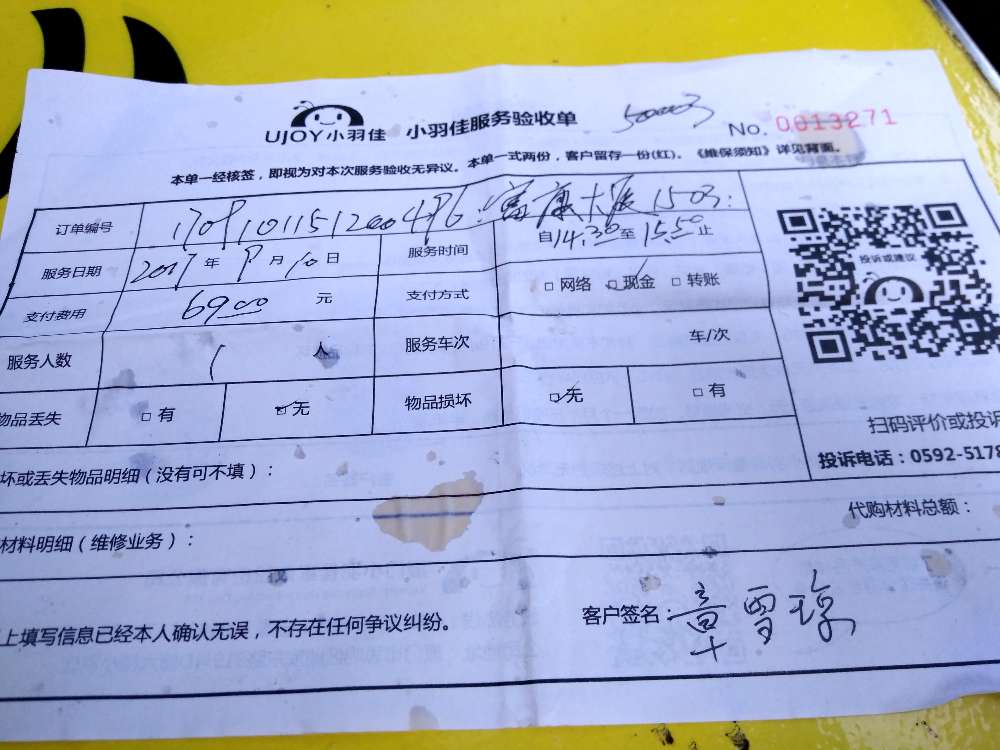 UJOY小羽佳 小羽佳服务验收单 No. 0013271
本单一经核签，即视为对本次服务验收无异议。本单一式两份，客户留存一份(红)。《维保须知》详见背面。
订单编号 富康大厦1503
服务日期 2017年9月10日 服务时间 自14:30至15:50止
支付费用 6900 元 支付方式 □网络 □现金 □转账
服务人数 1 人 服务车次 车/次
物品丢失 □有 □无 物品损坏 □无 □有
投诉或建议
扫码评价或投诉
投诉电话：0592-5178
坏或丢失物品明细（没有可不填）：
代购材料总额：
材料明细（维修业务）：
上填写信息已经本人确认无误，不存在任何争议纠纷。
客户签名：章雪琼